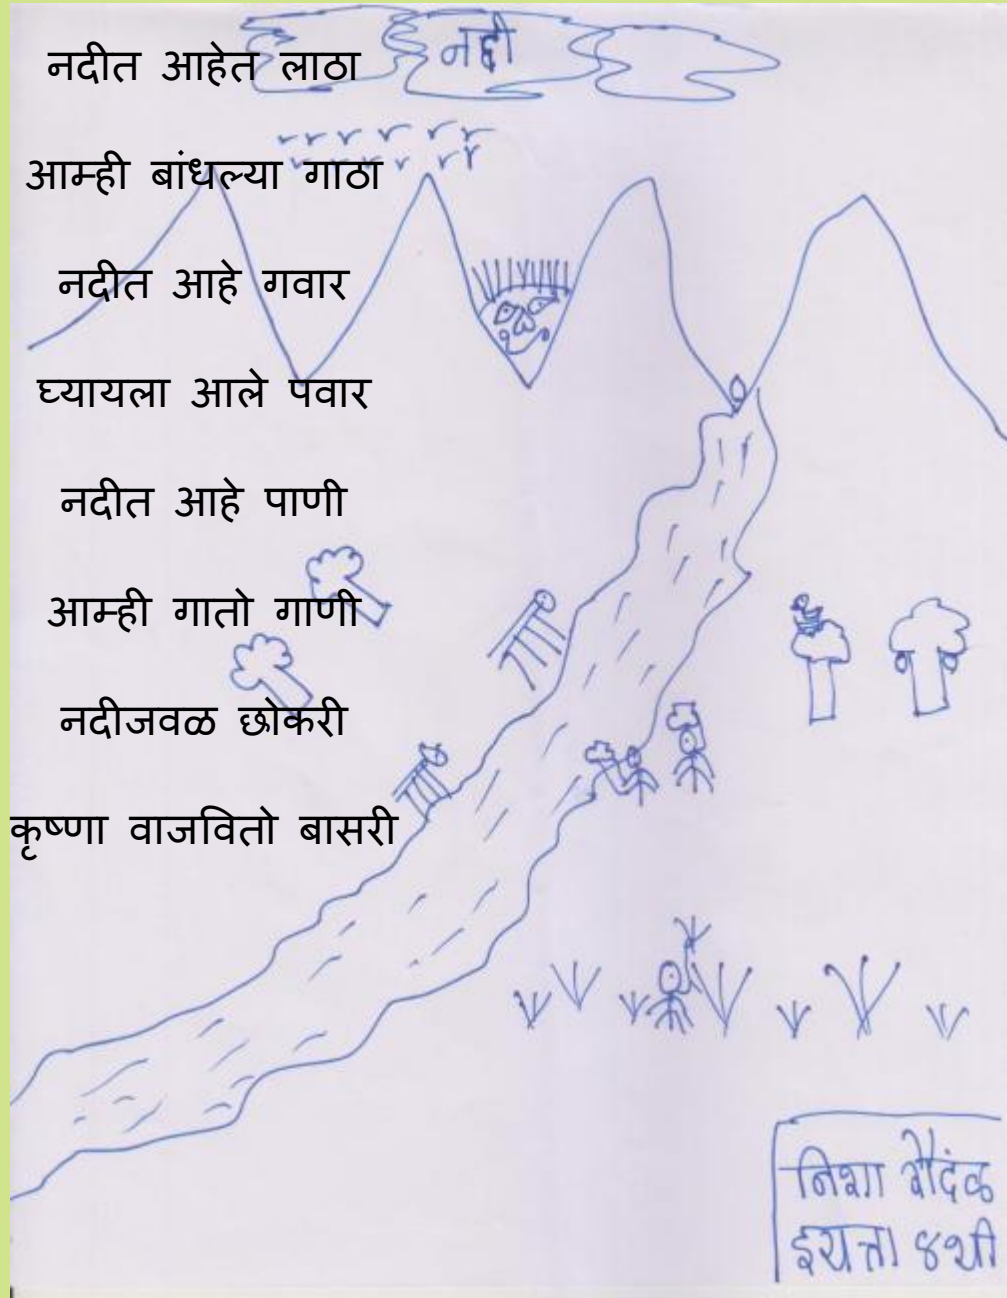 नदी
नदीत आहेत लाठा
आम्ही बांधल्या गाठा
नदीत आहे गवार
घ्यायला आले पवार
नदीत आहे पाणी
आम्ही गातो गाणी
नदीजवळ छोकरी
कृष्णा वाजवितो बासरी
निशा शेंदक
इयत्ता ४थी